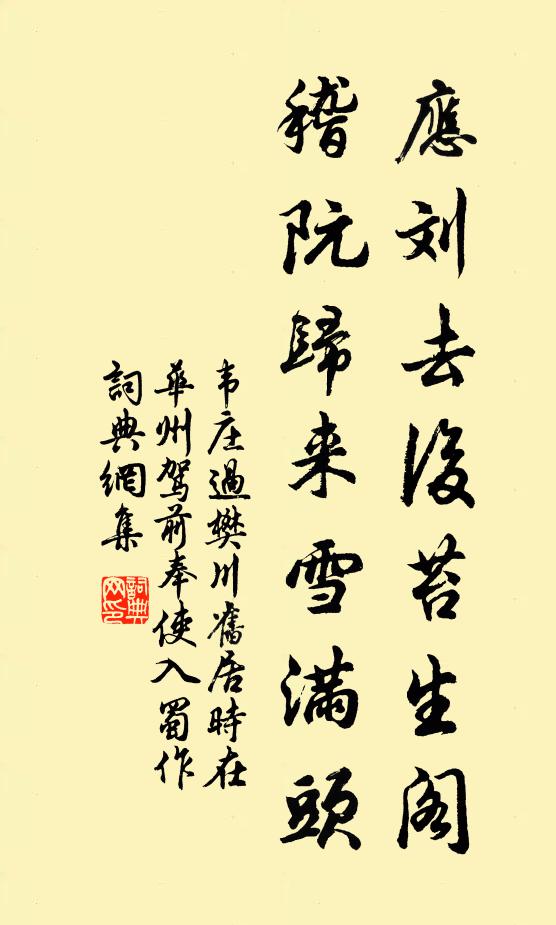 應刘去後苔生阁
稽阮歸来雪满頭
韦庄過樊川舊居時在
華州駕前奉使入蜀作
詞典網集
詞典网印